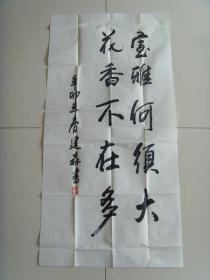 室雅何須大
花香不在多
辛卯年春建森書